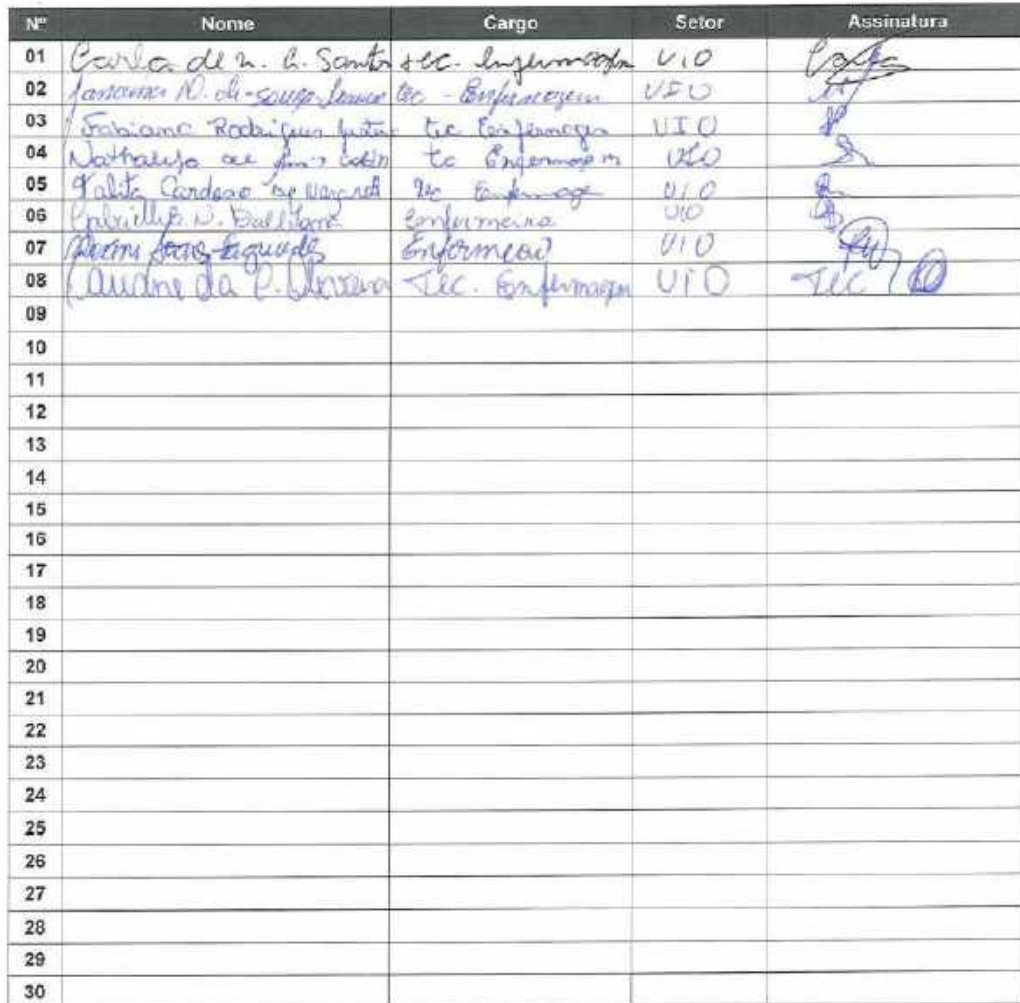 Nº Nome Cargo Setor Assinatura
01 Carla de n. G. Santo tec. enfermagem UIO Carla
02 N. de Souza tec - Enfermagem UIO
03 Fabiana Rodrigues tec Enfermagem UIO
04 Nathalya de tc Enfermagem UIO
05 Talita Cardoso de Tec Enfermage UIO
06 Gabrielly N. Enfermeira UIO
07 Enfermeira UIO
08 Lauane da P. Oliveira Tec. Enfermagem UIO Tec
09
10
11
12
13
14
15
16
17
18
19
20
21
22
23
24
25
26
27
28
29
30